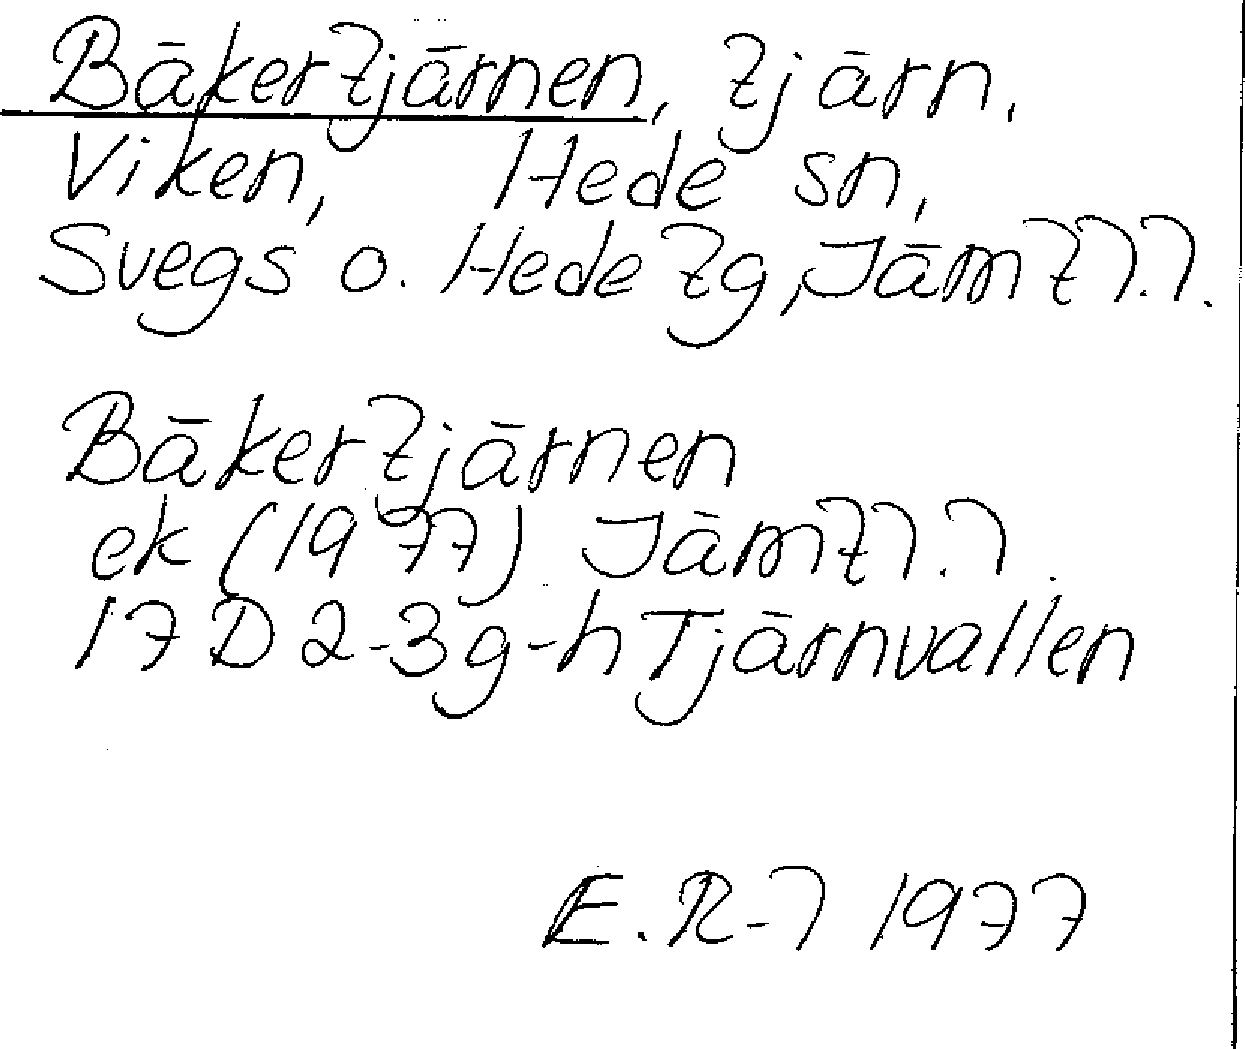 Bäkertjärnen, tjärn.
Viken, Hede sn,
Svegs o. Hede tg, Jämtl.l.
Bäkertjärnen
ek (1977) Jämtl.l.
17D 2-3 g-h Tjärnvallen
E.R-l 1977